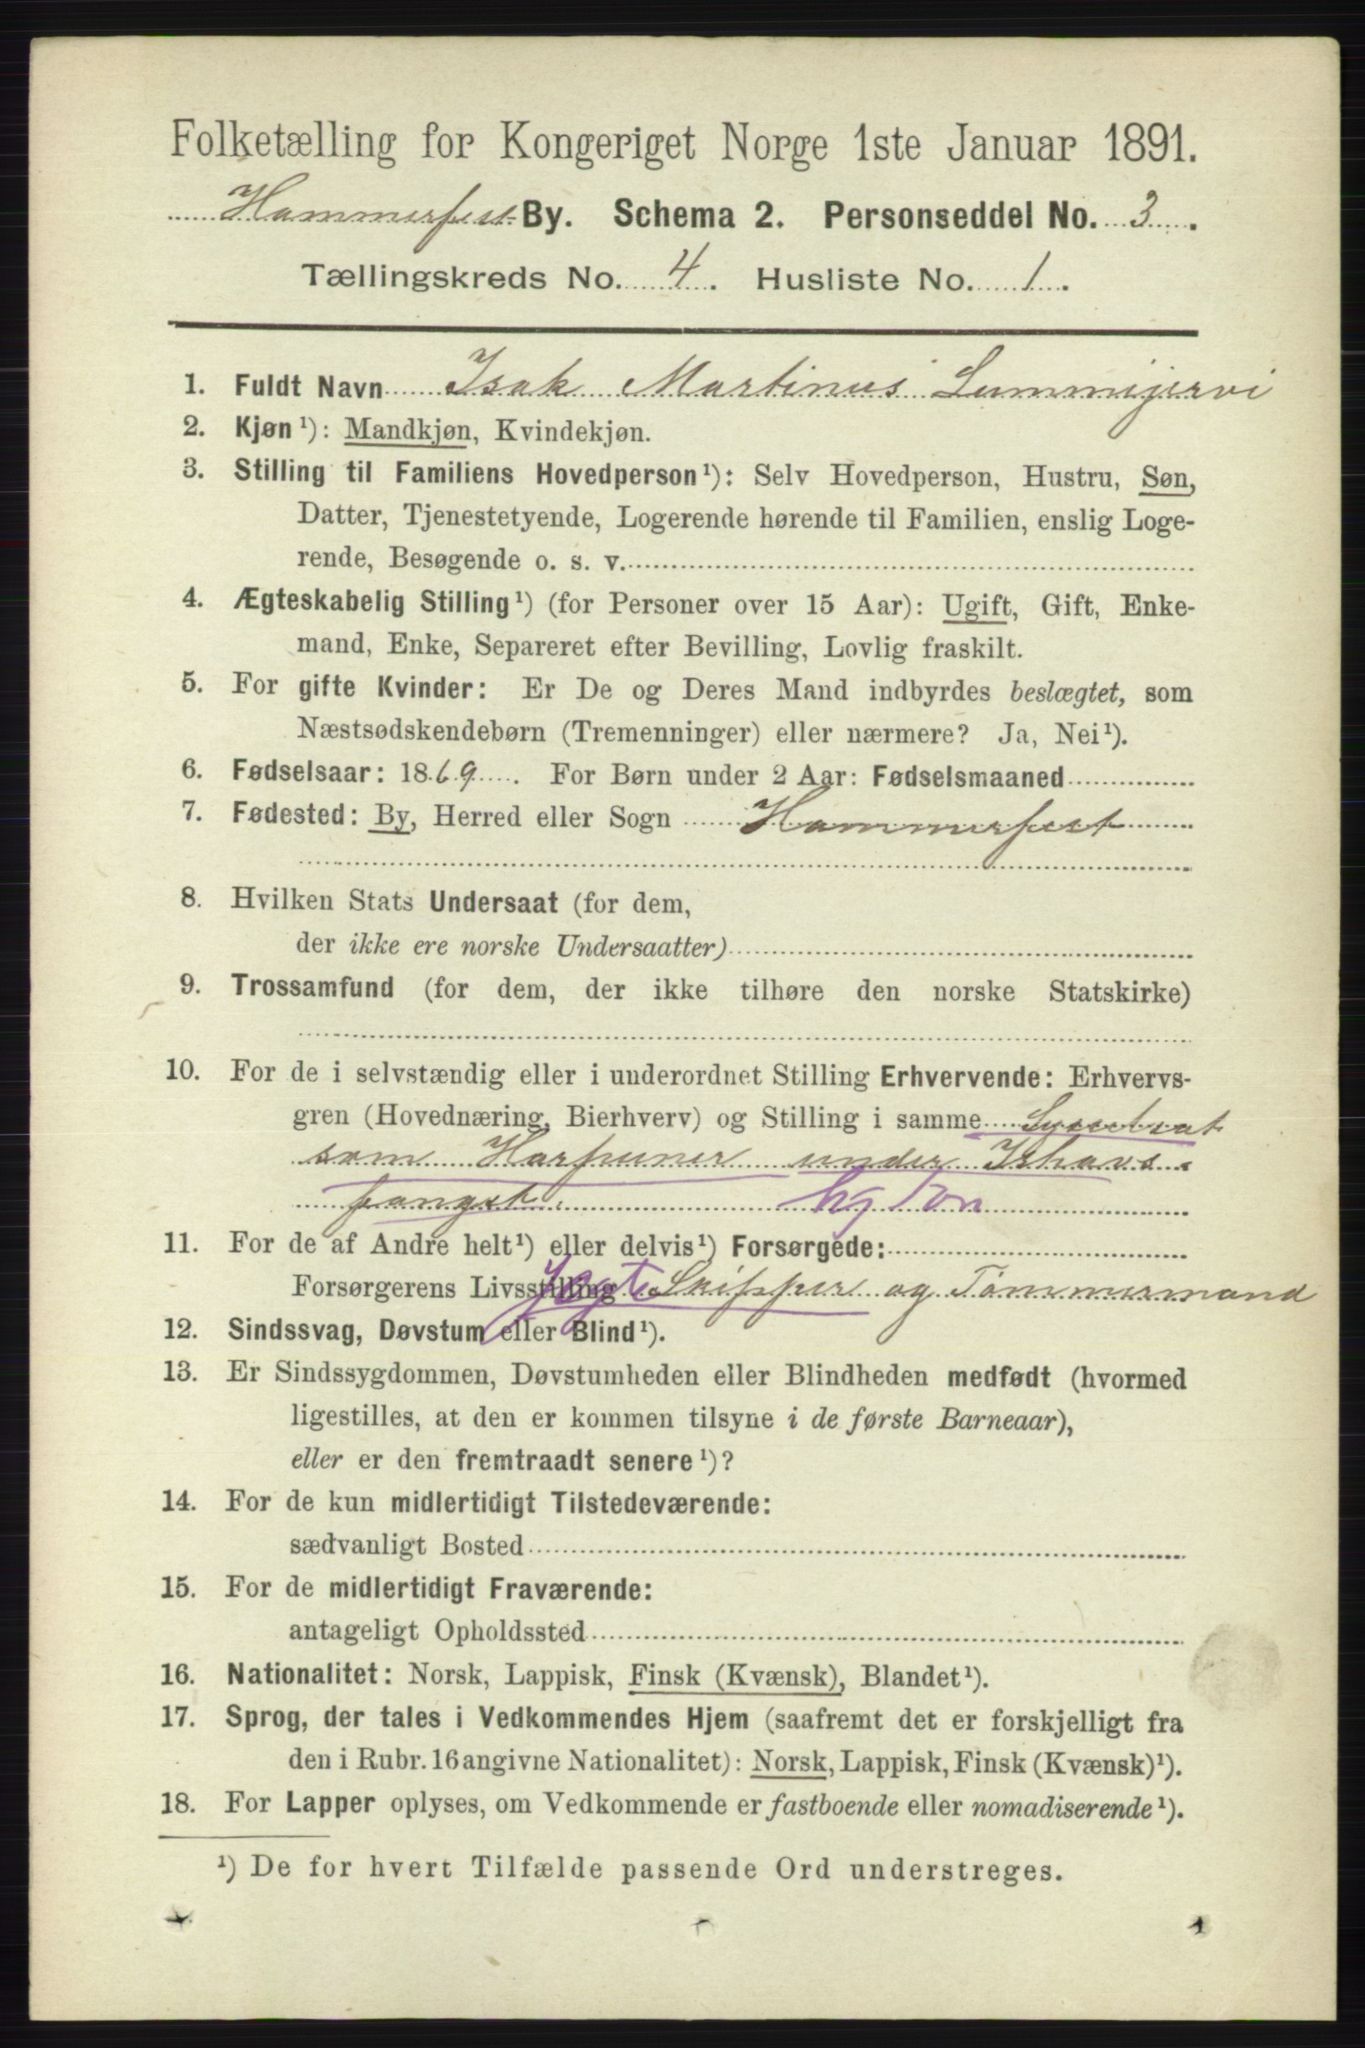 Folketælling for Kongeriget Norge 1ste Januar 1891.
Hammerfest By. Schema 2. Personseddel No. 3.
Tællingskreds No. 4. Husliste No. 1.
1. Fuldt Navn Isak Martinus Lummijervi
2. Kjøn¹): Mandkjøn, Kvindekjøn.
3. Stilling til Familiens Hovedperson¹): Selv Hovedperson, Hustru, Søn,
Datter, Tjenestetyende, Logerende hørende til Familien, enslig Loge-
rende, Besøgende o. s. v.
4. Ægteskabelig Stilling¹) (for Personer over 15 Aar): Ugift, Gift, Enke-
mand, Enke, Separeret efter Bevilling, Lovlig fraskilt.
5. For gifte Kvinder: Er De og Deres Mand indbyrdes beslægtet, som
Næstsødskendebørn (Tremenninger) eller nærmere? Ja, Nei¹).
6. Fødselsaar: 1869. For Børn under 2 Aar: Fødselsmaaned
7. Fødested: By, Herred eller Sogn Hammerfest
8. Hvilken Stats Undersaat (for dem,
der ikke ere norske Undersaatter)
9. Trossamfund (for dem, der ikke tilhøre den norske Statskirke)
10. For de i selvstændig eller i underordnet Stilling Erhvervende: Erhvervs-
gren (Hovednæring, Bierhverv) og Stilling i samme
som Harpuner under Ishavs-
fangst.
11. For de af Andre helt¹) eller delvis¹) Forsørgede:
Forsørgerens Livsstilling Jagt Skipper og Tømmermand
12. Sindssvag, Døvstum eller Blind¹).
13. Er Sindssygdommen, Døvstumheden eller Blindheden medfødt (hvormed
ligestilles, at den er kommen tilsyne i de første Barneaar),
eller er den fremtraadt senere¹)?
14. For de kun midlertidigt Tilstedeværende:
sædvanligt Bosted
15. For de midlertidigt Fraværende:
antageligt Opholdssted
16. Nationalitet: Norsk, Lappisk, Finsk (Kvænsk), Blandet¹).
17. Sprog, der tales i Vedkommendes Hjem (saafremt det er forskjelligt fra
den i Rubr. 16 angivne Nationalitet): Norsk, Lappisk, Finsk (Kvænsk)¹).
18. For Lapper oplyses, om Vedkommende er fastboende eller nomadiserende¹).
¹) De for hvert Tilfælde passende Ord understreges.